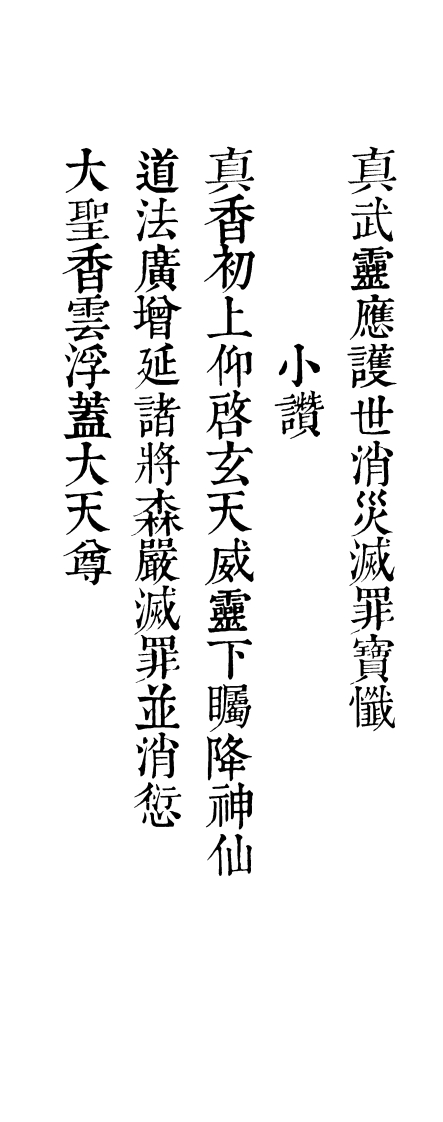 真武靈應護世消災滅罪寶懺
小讚
真香初上仰啓玄天威靈下矚降神仙
道法廣增延諸將森嚴滅罪並消愆
大聖香雲浮蓋大天尊